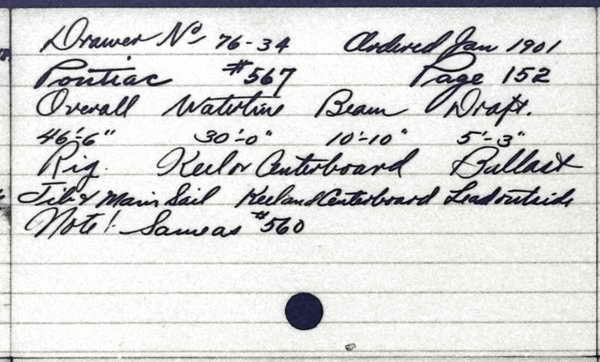 Drawer No 76-34 Ordered Jan 1901
Pontiac #567 Page 152
Overall Waterline Beam Draft.
46'-6" 30'-0" 10'-10" 5'-3"
Rig. Keel or Centerboard Ballast
Jib & Main Sail Keel and Centerboard Lead outside
Note! Same as #560